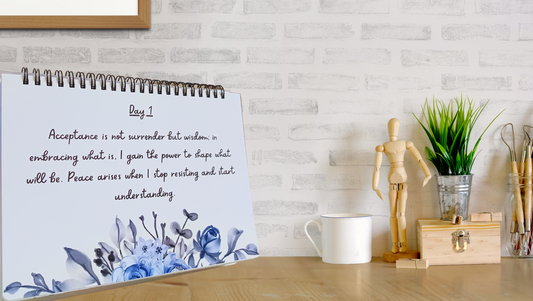 Day 1
Acceptance is not surrender but wisdom; in
embracing what is, I gain the power to shape what
will be. Peace arises when I stop resisting and start
understanding.